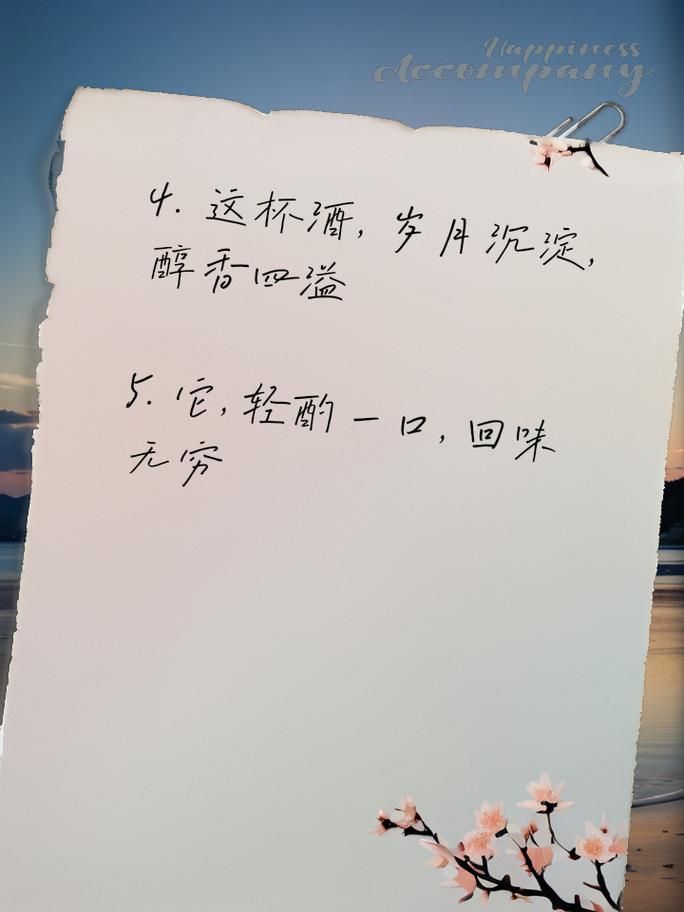 Happiness
Accompany
4. 这杯酒，岁月沉淀，
醇香四溢
5. 它，轻酌一口，回味
无穷